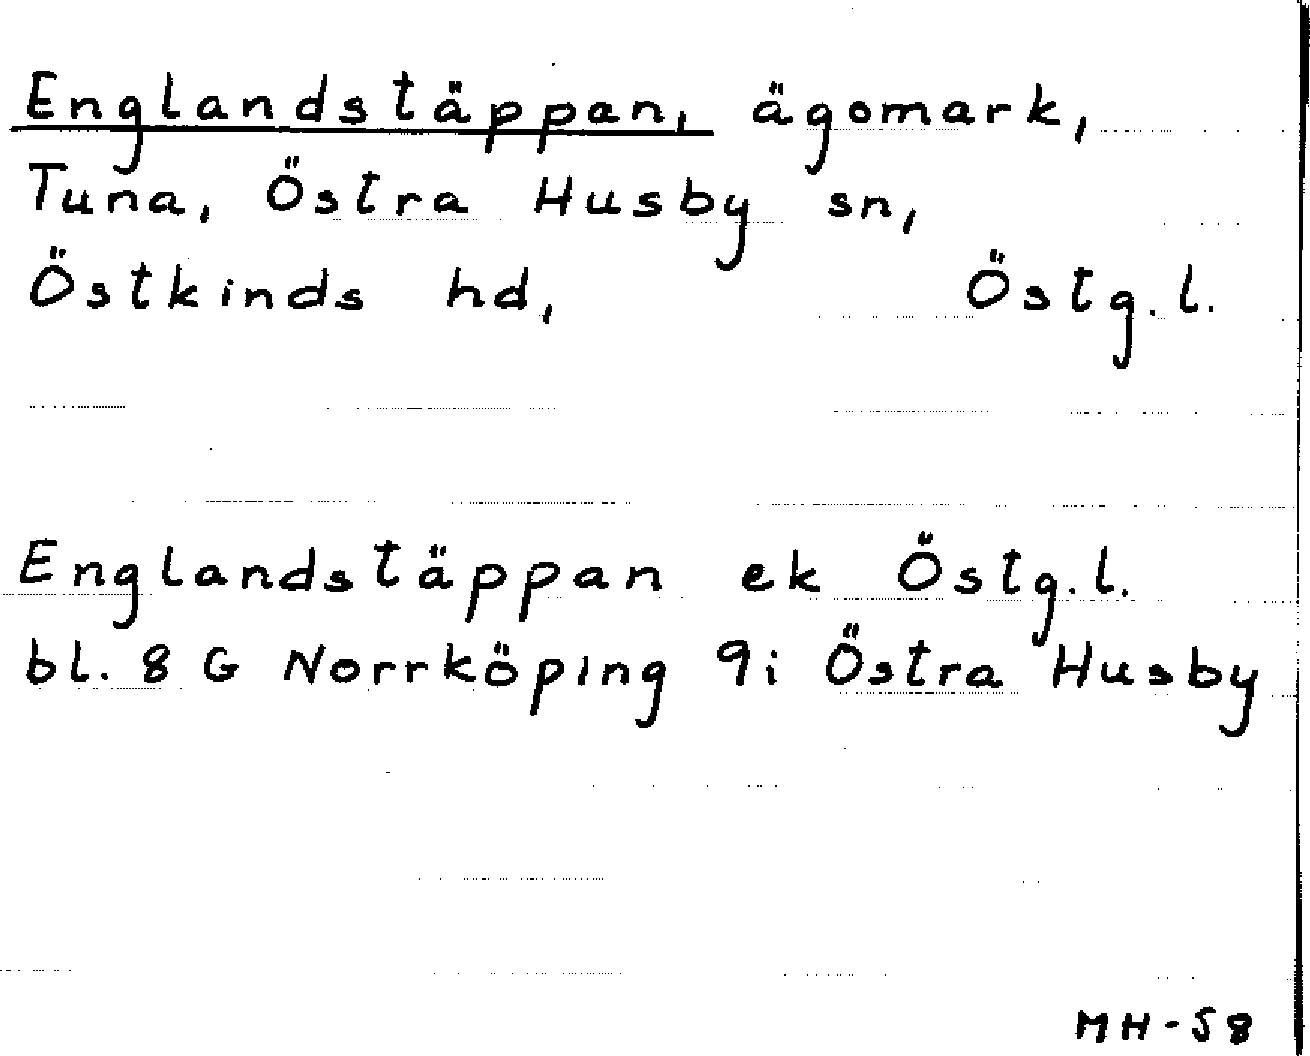 Englandstäppan, ägomark,
Tuna, Östra Husby sn,
Östkinds hd, Östg.l.
Englandstäppan ek Östg.l.
bl. 8 G Norrköping 9i Östra Husby
MH-58